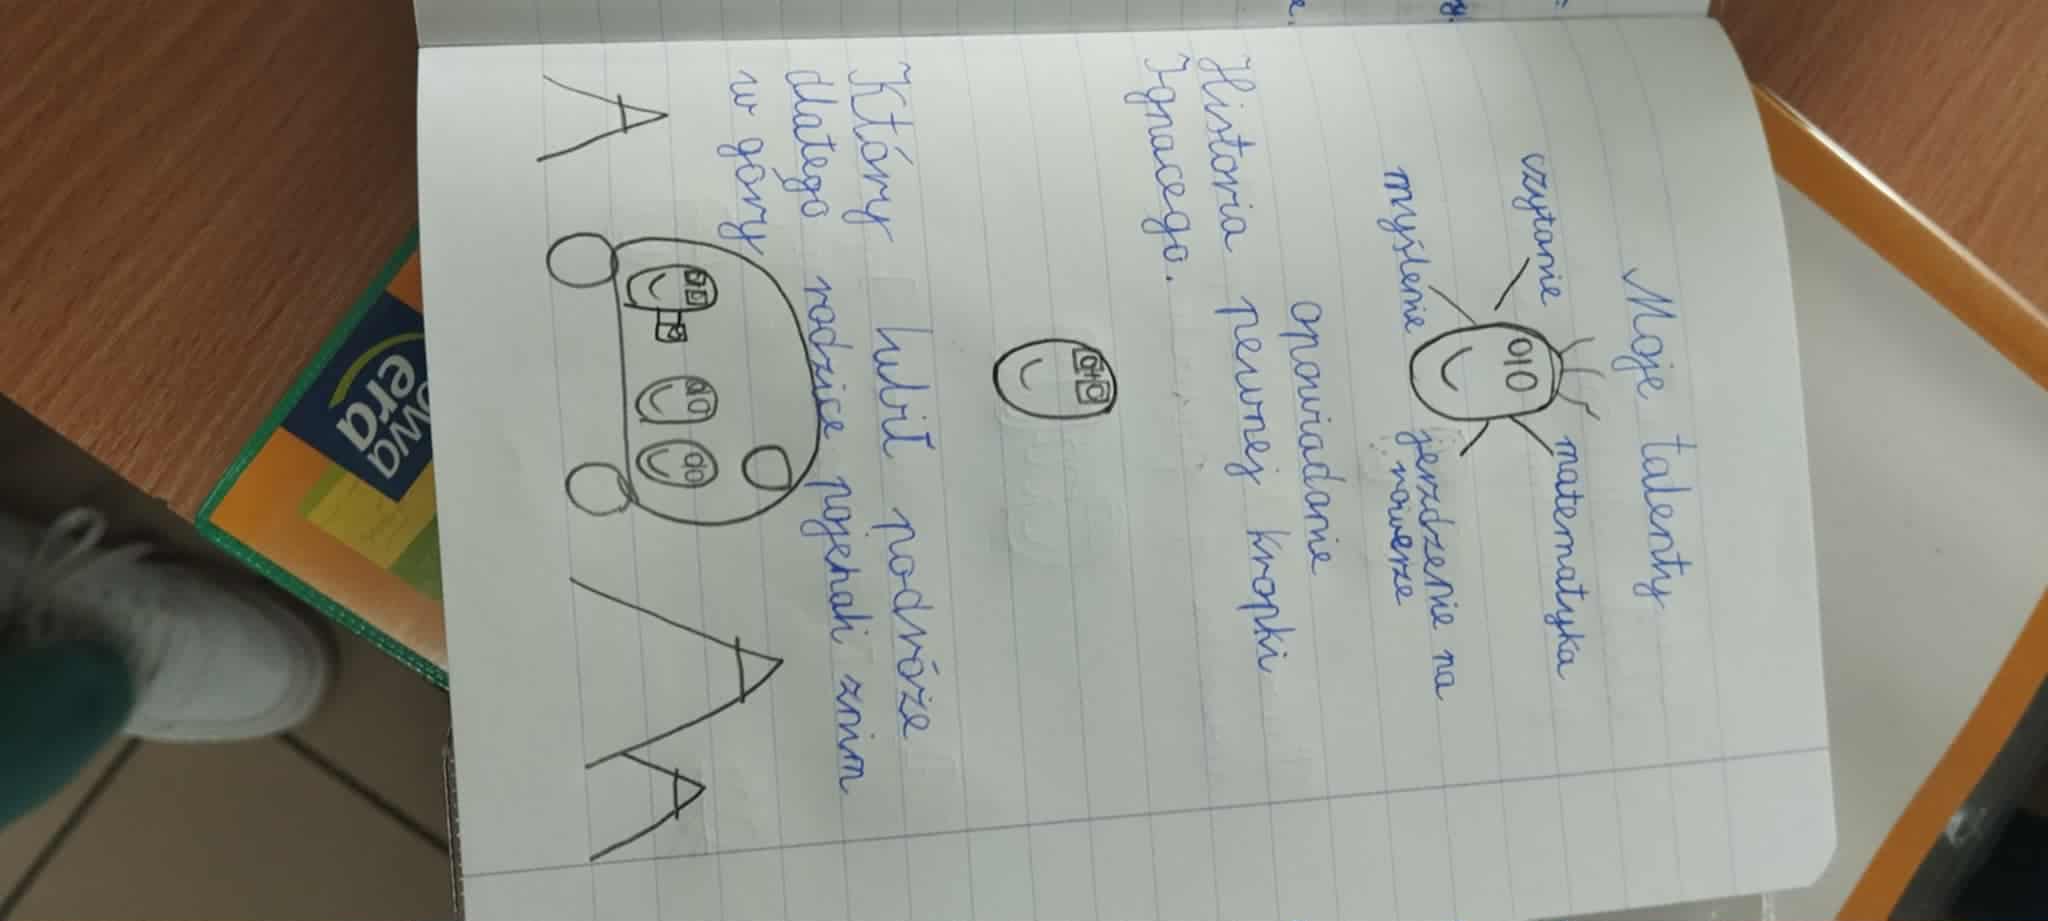 Moje talenty
czytanie
matematyka
myślenie
jerzdzenie na
rowerze
opowiadanie
Historia pewnej kropki
Ignacego.
Który lubił podróże
dlatego rodzice pojehali znim
w góry
owa
era